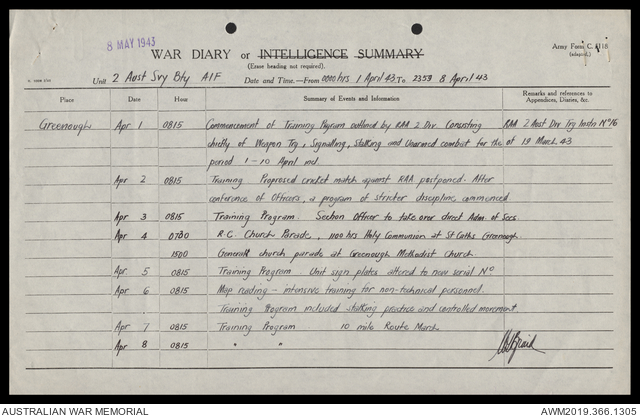 8 MAY 1943
WAR DIARY or INTELLIGENCE SUMMARY
(Erase heading not required).
Army Form C. 2118
(adapted)
Unit 2 Aust Svy Bty AIF Date and Time.—From 0000 hrs 1 April 43 To 2359 8 April 43
Place Date Hour Summary of Events and Information Remarks and references to Appendices, Diaries, &c.
Greenough Apr 1 0815 Commencement of Training Program outlined by RAA 2 Div. Consisting RAA 2 Aust Div Trg Instn No 16
chiefly of Weapon Trg, Signalling, Stalking and Unarmed combat for the of 19 March 43
period 1 - 10 April incl.
Apr 2 0815 Training Proprosed cricket match against RAA postponed. After
conference of Officers, a program of stricter discipline commenced
Apr 3 0815 Training Program. Section Officer to take over direct Adm. of Secs
Apr 4 0700 R.C. Church Parade, 1100 hrs Holy Communion at St Caths Greenough.
1500 General church parade at Greenough Methodist church
Apr 5 0815 Training Program. Unit sign plates altered to new serial No
Apr 6 0815 Map reading - intensive training for non-technical personnel.
Training Program included stalking practice and controlled movement.
Apr 7 0815 Training Program 10 mile Route March
Apr 8 0815 " "
AUSTRALIAN WAR MEMORIAL
AWM2019.366.1305